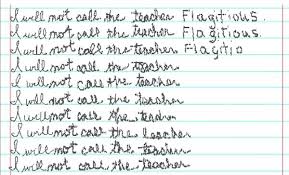 I will not call the teacher Flagitious.
I will not call the teacher Flagitious.
I will not call the teacher Flagitio
I will not call the teacher
I will not call the teacher
I will not call the teacher
I will not call the teacher
I will not call the teacher
I will not call the teacher
I will not call the teacher